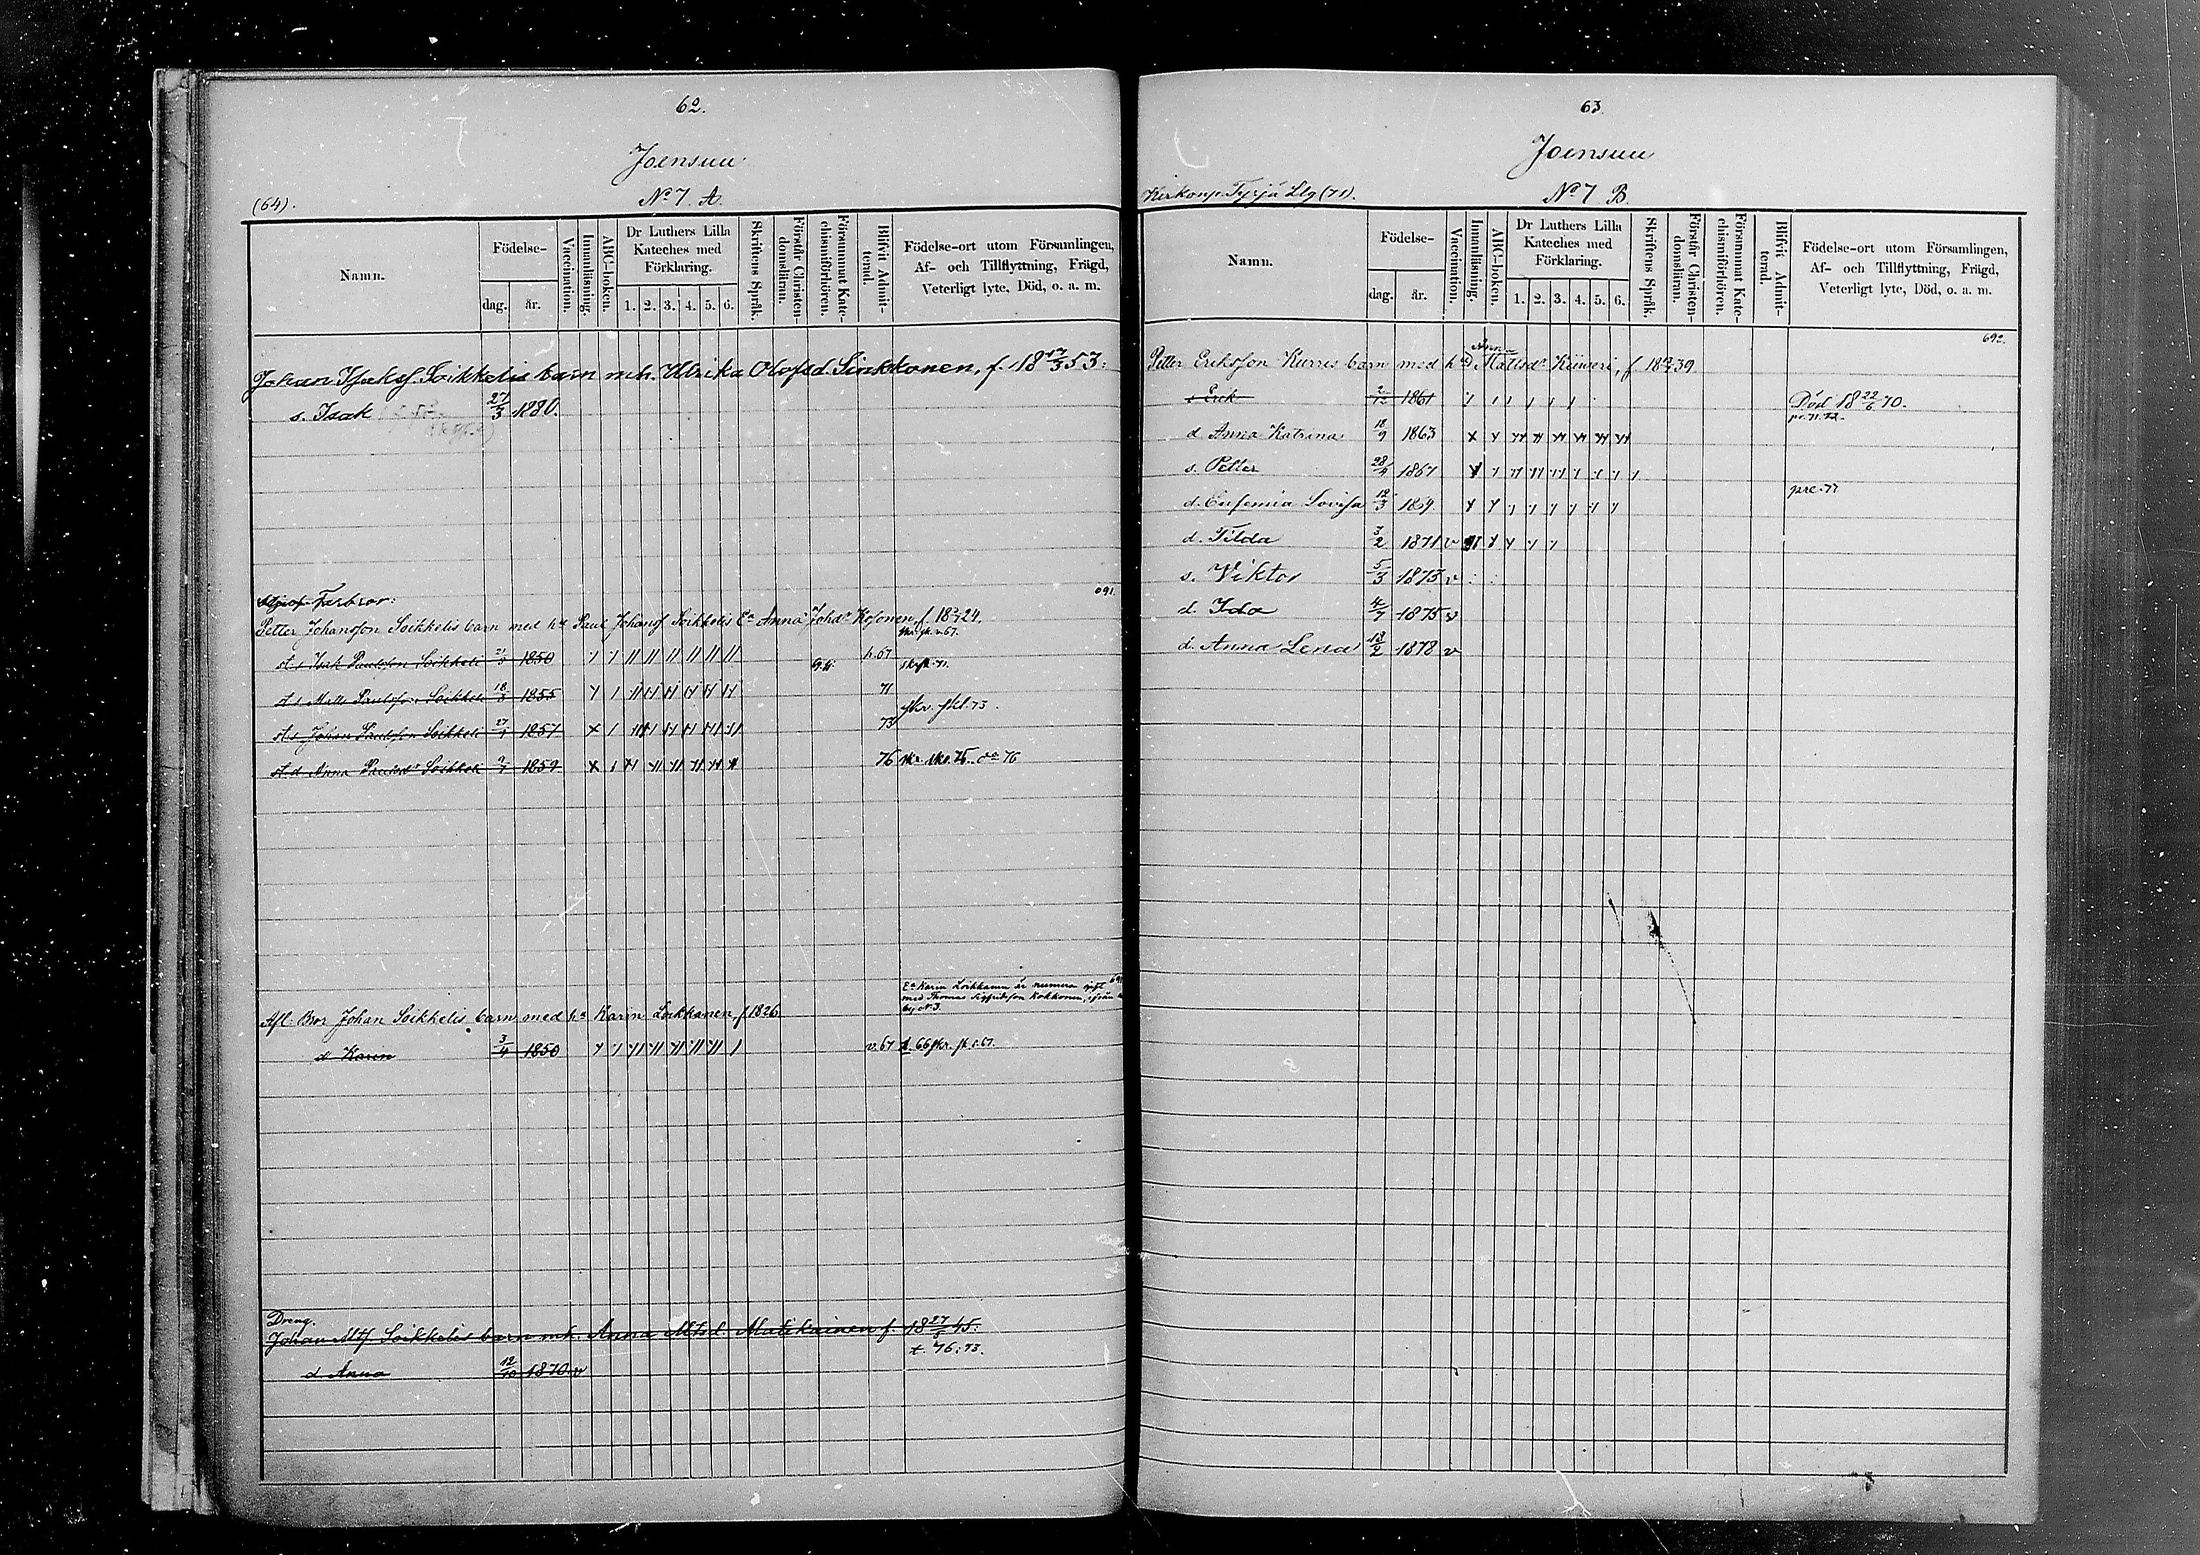 62.
Joensuu
(64).
No 7. A.
Namn.
Födelse-
dag.
år.
Vaccination.
Innanläsning.
ABC-boken.
Dr Luthers Lilla
Kateches med
Förklaring.
1. 2. 3. 4. 5. 6.
Skriftens Språk.
Förstår Christen-
domslitran.
Försummat Kate-
chismiförhören.
Blifvit Admit-
terad.
Födelse-ort utom Församlingen,
Af- och Tillflyttning, Frägd,
Veterligt lyte, Död, o. a. m.
Johan Isaksf. Soikkelis barn m.h. Ulrika Olofsd. Sinkkonen, f. 18 17/3 53:
s. Isak 27/3 1880
Farbror:
691.
Petter Johansson Soikkelis barn med h. Paul Johansf Soikkelis Ea Anna Johds Kosonen, f. 18 24.
s Isak Paulsson Soikkeli 1850 h. 67
s Matts Paulsson Soikkeli 18 1855 71
s Johan Paulsson Soikkeli 27 1857 73 skr. skl. 73.
d Anna Paulsdr Soikkeli 1859 76
Ea Karin Loikkanen är numera gift
med Thomas Sigfridsson Kokkonen, från
by N 3.
Afl. Bror Johan Soikkelis barn med ha Karin Loikkanen, f 1826
d Karin 3/4 1850 v. 67
Dreng.
Johan Mtsf Soikkelis barn mh. Anna Mtsd. Matikainen f. 18 27 45:
t. 76: 73.
d Anna 12/10 1870 v
63
Joensuu
Kirkonp. Tyrjä Llg (71).
No 7 B.
Namn.
Födelse-
dag.
år.
Vaccination.
Innanläsning.
ABC-boken.
Dr Luthers Lilla
Kateches med
Förklaring.
1. 2. 3. 4. 5. 6.
Skriftens Språk.
Förstår Christen-
domslitran.
Försummat Kate-
chismiförhören.
Blifvit Admit-
terad.
Födelse-ort utom Församlingen,
Af- och Tillflyttning, Frägd,
Veterligt lyte, Död, o. a. m.
692.
Anna
Petter Eriksson Kurris barn med h Mattsdr Kiiveri, f 18 39
s Erik 1861 Död 18 22/6 70.
d Anna Katrina 18/9 1863
s. Petter 28/4 1867
d. Eufemia Lovisa 12/3 1869
d. Tilda 3/2 1871 v
s. Viktor 5/3 1873 v
d. Ida 4/7 1875 v
d. Anna Lena 13/2 1878 v